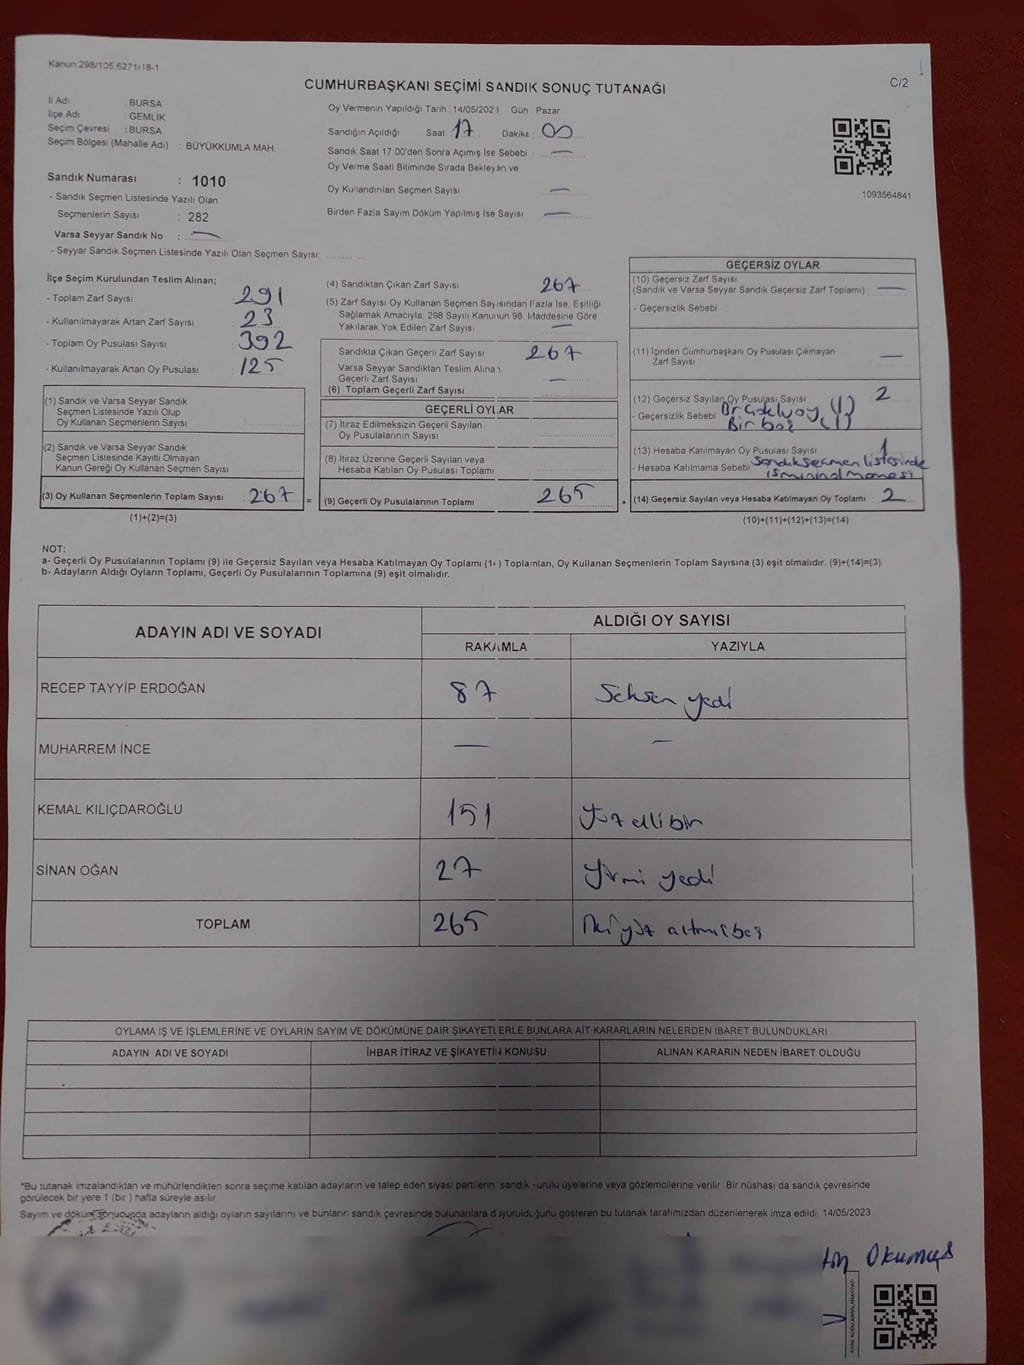 Kanun:298/105,6271/18-1
CUMHURBAŞKANI SEÇİMİ SANDIK SONUÇ TUTANAĞI
C/2
İl Adı : BURSA
İlçe Adı : GEMLİK
Seçim Çevresi : BURSA
Seçim Bölgesi (Mahalle Adı) : BÜYÜKKUMLA MAH.
Sandık Numarası : 1010
- Sandık Seçmen Listesinde Yazılı Olan
Seçmenlerin Sayısı : 282
Varsa Seyyar Sandık No : —
- Seyyar Sandık Seçmen Listesinde Yazılı Olan Seçmen Sayısı:
Oy Vermenin Yapıldığı Tarih : 14/05/2023 Gün Pazar
Sandığın Açıldığı Saat : 17 Dakika : 00
Sandık Saat 17:00'den Sonra Açımış İse Sebebi : —
Oy Verme Saati Bitiminde Sırada Bekleyan ve
Oy Kullandırılan Seçmen Sayısı —
Birden Fazla Sayım Döküm Yapılmış İse Sayısı : —
1093564841
İlçe Seçim Kurulundan Teslim Alınan;
- Toplam Zarf Sayısı : 291
- Kullanılmayarak Artan Zarf Sayısı : 23
- Toplam Oy Pusulası Sayısı : 392
- Kullanılmayarak Artan Oy Pusulası : 125
(1) Sandık ve Varsa Seyyar Sandık
Seçmen Listesinde Yazılı Olup
Oy Kullanan Seçmenlerin Sayısı
(2) Sandık ve Varsa Seyyar Sandık
Seçmen Listesinde Kayıtlı Olmayan
Kanun Gereği Oy Kullanan Seçmen Sayısı
(3) Oy Kullanan Seçmenlerin Toplam Sayısı : 267 =
(1)+(2)=(3)
(4) Sandıktan Çıkan Zarf Sayısı : 267
(5) Zarf Sayısı Oy Kullanan Seçmen Sayısından Fazla İse, Eşitliği
Sağlamak Amacıyla, 298 Sayılı Kanunun 98. Maddesine Göre
Yakılarak Yok Edilen Zarf Sayısı : —
Sandıkta Çıkan Geçerli Zarf Sayısı : 267
Varsa Seyyar Sandıktan Teslim Alınan
Geçerli Zarf Sayısı : —
(6) Toplam Geçerli Zarf Sayısı
GEÇERLİ OYLAR
(7) İtiraz Edilmeksizin Geçerli Sayılan
Oy Pusulalarının Sayısı
(8) İtiraz Üzerine Geçerli Sayılan veya
Hesaba Katılan Oy Pusulası Toplamı
(9) Geçerli Oy Pusulalarının Toplamı : 265 +
GEÇERSİZ OYLAR
(10) Geçersiz Zarf Sayısı
(Sandık ve Varsa Seyyar Sandık Geçersiz Zarf Toplamı) —
- Geçersizlik Sebebi :
(11) İçinden Cumhurbaşkanı Oy Pusulası Çıkmayan
Zarf Sayısı : —
(12) Geçersiz Sayılan Oy Pusulası Sayısı : 2
- Geçersizlik Sebebi :
Bir boş
(13) Hesaba Katılmayan Oy Pusulası Sayısı : 1
- Hesaba Katılmama Sebebi : Sandık seçmen listesinde
isminin olmaması
(14) Geçersiz Sayılan veya Hesaba Katılmayan Oy Toplamı : 2
(10)+(11)+(12)+(13)=(14)
NOT:
a- Geçerli Oy Pusulalarının Toplamı (9) ile Geçersiz Sayılan veya Hesaba Katılmayan Oy Toplamı (14) Toplamları, Oy Kullanan Seçmenlerin Toplam Sayısına (3) eşit olmalıdır. (9)+(14)=(3)
b- Adayların Aldığı Oyların Toplamı, Geçerli Oy Pusulalarının Toplamına (9) eşit olmalıdır.
ADAYIN ADI VE SOYADI ALDIĞI OY SAYISI
RAKAMLA YAZIYLA
RECEP TAYYİP ERDOĞAN 87 Seksen yedi
MUHARREM İNCE — —
KEMAL KILIÇDAROĞLU 151 Yüz elli bir
SİNAN OĞAN 27 Yirmi yedi
TOPLAM 265 İki yüz altmış beş
OYLAMA İŞ VE İŞLEMLERİNE VE OYLARIN SAYIM VE DÖKÜMÜNE DAİR ŞİKAYETLERLE BUNLARA AİT KARARLARIN NELERDEN İBARET BULUNDUKLARI
ADAYIN ADI VE SOYADI İHBAR İTİRAZ VE ŞİKAYETİN KONUSU ALINAN KARARIN NEDEN İBARET OLDUĞU
*Bu tutanak imzalandıktan ve mühürlendikten sonra seçime katılan adayların ve talep eden siyasi partilerin sandık kurulu üyelerine veya gözlemcilerine verilir. Bir nüshası da sandık çevresinde
görülecek bir yere 1 (bir) hafta süreyle asılır.
Sayım ve döküm sonucunda adayların aldığı oyların sayılarını ve bunların sandık çevresinde bulunanlara duyurulduğunu gösteren bu tutanak tarafımızdan düzenlenerek imza edildi. 14/05/2023
Okumuş